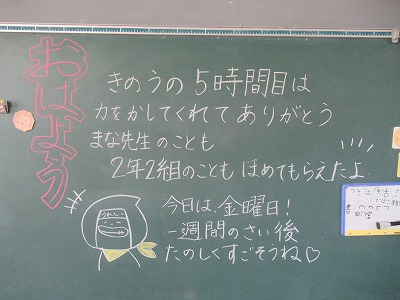 おはよう
きのうの5時間目は
力をかしてくれてありがとう
まな先生のことも
2年2組のこともほめてもらえたよ
うれしい
今日は、金曜日!
一週間のさい後
たのしくすごそうね♡